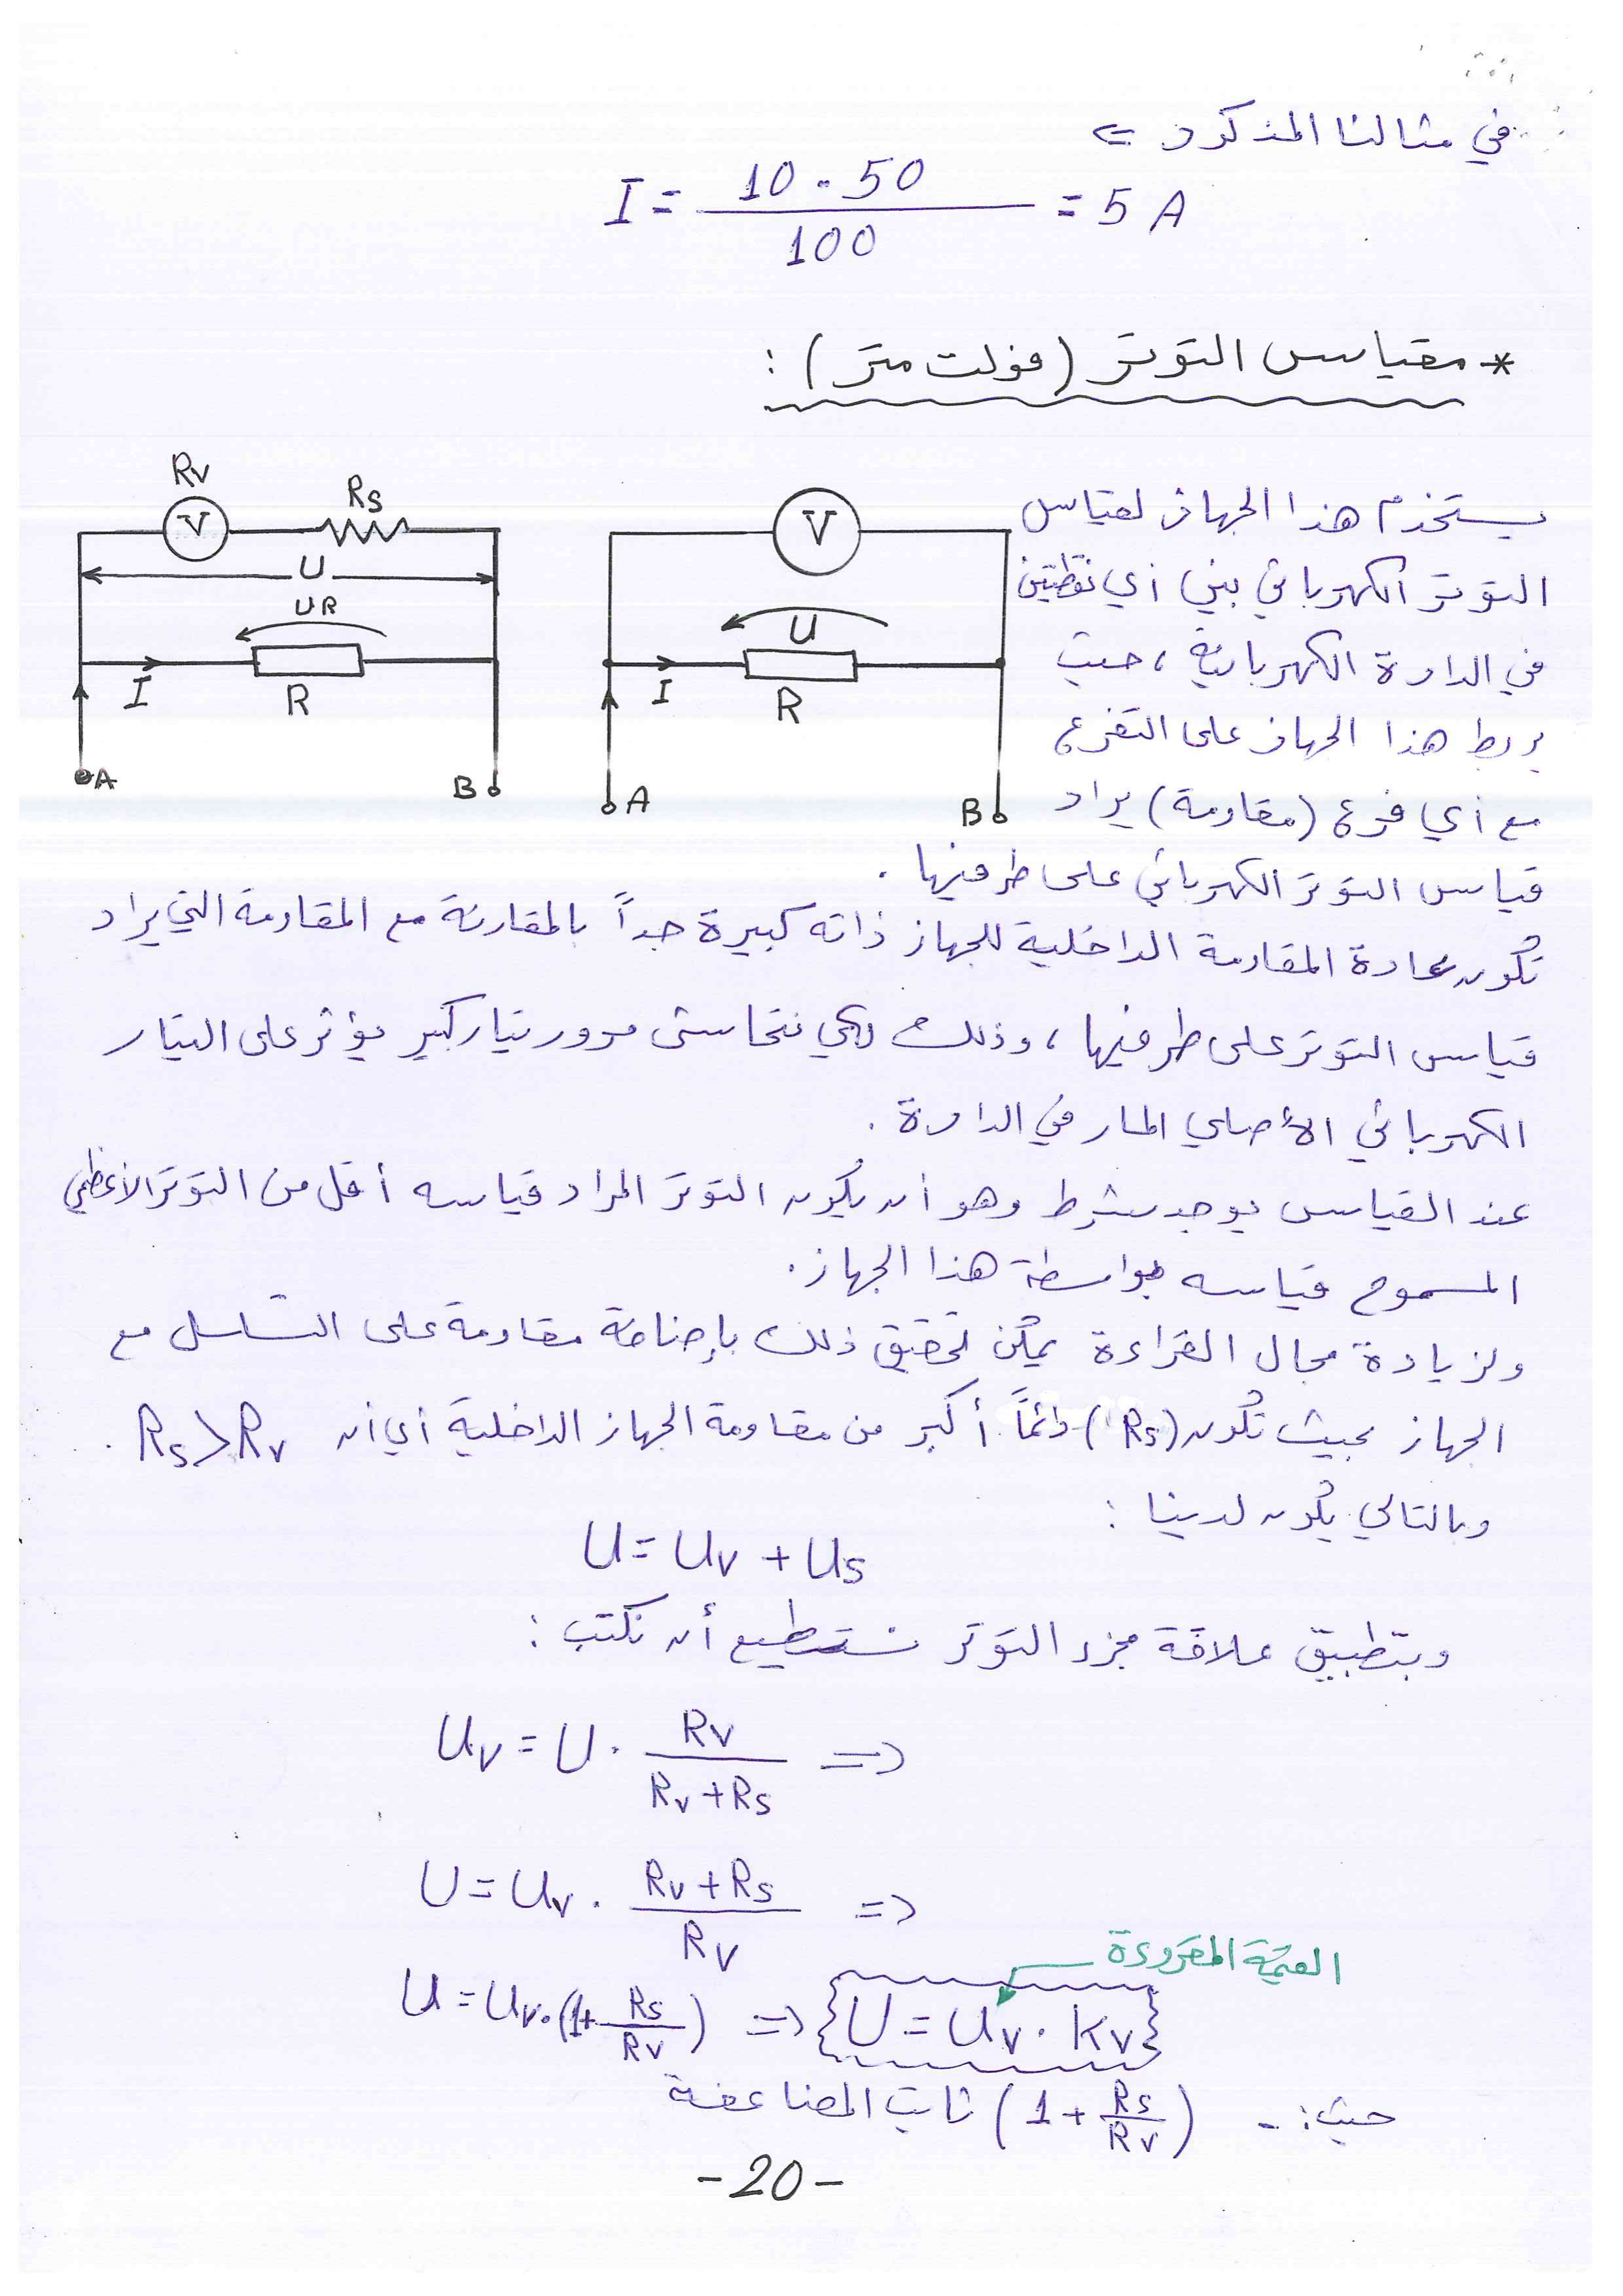 في مثالنا المذكور ⇐
I = 10 · 50 / 100 = 5 A
* مقياس التوتر (فولت متر) :
Rv
Rs
V
U
UR
I
R
A
B
V
U
I
R
A
B
يستخدم هذا الجهاز لقياس
التوتر الكهربائي بين أي نقطتين
في الدارة الكهربائية ، حيث
يربط هذا الجهاز على التفرع
مع أي فرع (مقاومة) يراد
قياس التوتر الكهربائي على طرفيها .
تكون عادة المقاومة الداخلية للجهاز ذاته كبيرة جداً بالمقارنة مع المقاومة التي يراد
قياس التوتر على طرفيها ، وذلك لكي نتحاشى مرور تيار كبير يؤثر على التيار
الكهربائي الأصلي المار في الدارة .
عند القياس يوجد شرط وهو أن يكون التوتر المراد قياسه أقل من التوتر الأعظمي
المسموح قياسه بواسطة هذا الجهاز .
ولزيادة مجال القراءة يمكن تحقيق ذلك بإضافة مقاومة على التسلسل مع
الجهاز بحيث تكون (Rs) دائماً أكبر من مقاومة الجهاز الداخلية أي أن Rs > Rv .
وبالتالي يكون لدينا :
U = Uv + Us
وبتطبيق علاقة مجزء التوتر نستطيع أن نكتب :
Uv = U · Rv / (Rv + Rs) ⇒
U = Uv · (Rv + Rs) / Rv ⇒
القيمة المقروءة
U = Uv · (1 + Rs/Rv) ⇒ {U = Uv · Kv}
حيث : - (1 + Rs/Rv) ثابت المضاعفة
- 20 -